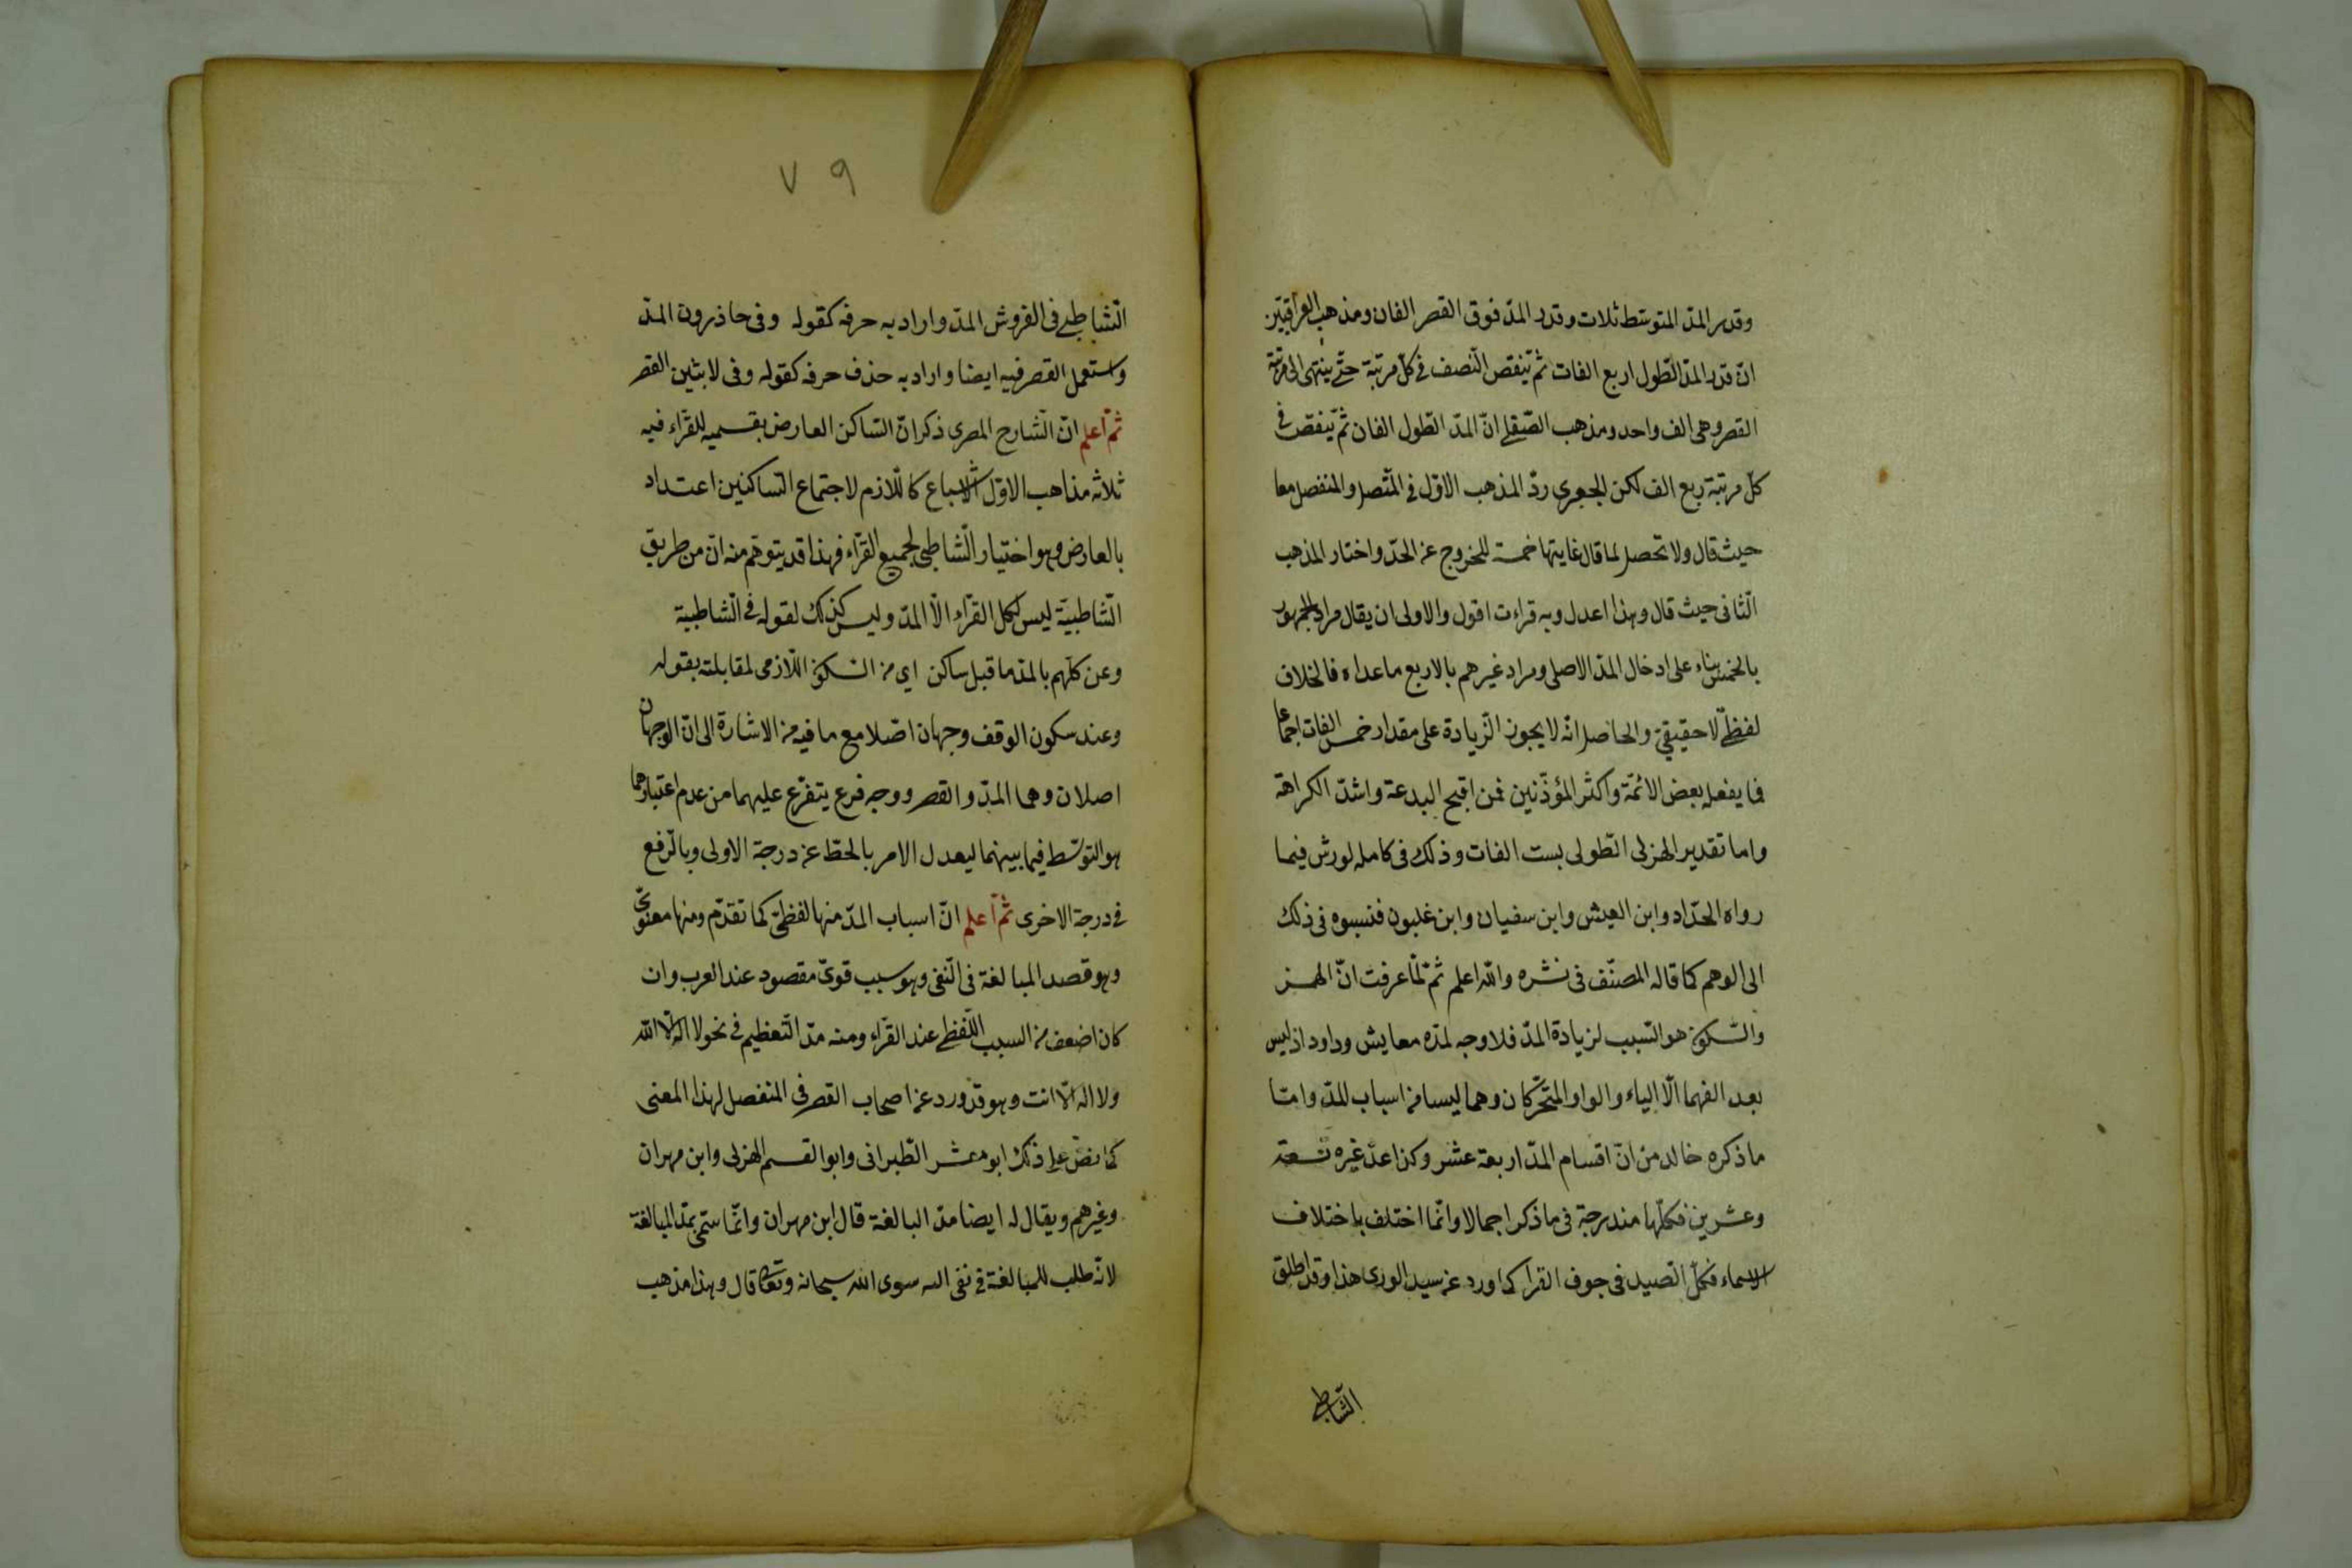 وقدر المدّ المتوسّط ثلاث وقدر المدّ فوق القصر الفان ومذهب العراقيّين
انّ قدر المدّ الطّول اربع الفات ثمّ ينقص النّصف في كلّ مرتبة حتّى ينتهى الى مرتبة
القصر وهى الف واحد ومذهب الصّقلى انّ المدّ الطّول الفان ثمّ ينقص في
كلّ مرتبة ربع الف لكن الجعبرى ردّ المذهب الاوّل في المتّصل والمنفصل معا
حيث قال ولا تحصل لما قال غايتها خمسة للخروج عن الحدّ واختار المذهب
الثّانى حيث قال وهذا اعدل وبه قراءت اقول والاولى ان يقال مراد الجمهور
بالخمس بناء على ادخال المدّ الاصلى ومراد غيرهم بالاربع ما عداه فالخلاف
لفظىّ لا حقيقىّ والحاصل انّه لا يجوز الزّيادة على مقدار خمس الفات اجماعا
فما يفعله بعض الائمّة واكثر المؤذّنين فمن اقبح البدعة واشدّ الكراهة
واما تقدير الهزلى الطّولى بست الفات وذلك فى كامله لورش فيما
رواه الحدّاد وابن العيش وابن سفيان وابن غلبون فنسبوه فى ذلك
الى الوهم كما قاله المصنّف فى نشره والله اعلم ثمّ لمّا عرفت انّ الهمز
والسّكون هو السّبب لزيادة المدّ فلا وجه لمدّه معايش وداود اذ ليس
بعد الفهما الّا الياء والواو المتحرّكان وهما ليسا من اسباب للمدّ وامّا
ما ذكره خالد من انّ اقسام المدّ اربعة عشر وكذا عدّ غيره تسعة
وعشرين فكلّها مندرجة فى ما ذكر اجمالا وانّما اختلف باختلاف
الاسماء فكلّ الصّيد فى جوف القرا كما ورد عن سيد الورى هذا وقد اطلق
الشّاطبى
٧٩
الشّاطبى فى الفروش المدّ واراد به حرفه كقوله وفى حاذرون المدّ
واستعمل القصر فيه ايضا واراد به حذف حرفه كقوله وفى لابثين القصر
ثمّ اعلم انّ الشّارح المصرى ذكر انّ السّاكن العارض بقسميه للقرّاء فيه
ثلاثة مذاهب الاوّل الاشباع كاللّازم لاجتماع السّاكنين اعتداد
بالعارض وهو اختيار الشّاطبى لجميع القرّاء فهذا قد يتوهّم منه انّ من طريق
الشّاطبيّة ليس لكل القرّاء الّا المدّ وليس كذلك لقوله فى الشّاطبية
وعن كلّهم بالمدّ ما قبل ساكن اي من السّكون اللّازمى لمقابلته بقوله
وعند سكون الوقف وجهان اصّلا مع ما فيه من الاشارة الى انّ الوجهان
اصلان وهما المدّ والقصر ووجه فرع يتفرّع عليهما من عدم اعتبارهما
هو التوسّط فيما بينهما ليعدل الامر بالحطّ عن درجة الاولى وبالرّفع
فى درجة الاخرى ثمّ اعلم انّ اسباب المدّ منها لفظىّ كما تقدّم ومنها معنوىّ
وهو قصد المبالغة فى النّفى وهو سبب قوىّ مقصود عند العرب وان
كان اضعف من السبب اللّفظى عند القرّاء ومنه مدّ التّعظيم فى نحو لا اله الّا الله
ولا اله الّا انت وهو قد ورد عن اصحاب القصر فى المنفصل لهذا المعنى
كما نصّ على ذلك ابو معشر الطّبرانى وابو القسم الهزلى وابن مهران
وغيرهم ويقال له ايضا مدّ البالغة قال ابن مهران وانّما سمّى بمدّ المبالغة
لانّه طلب للمبالغة فى نفى اله سوى الله سبحانه وتعالى قال وهذا مذهب